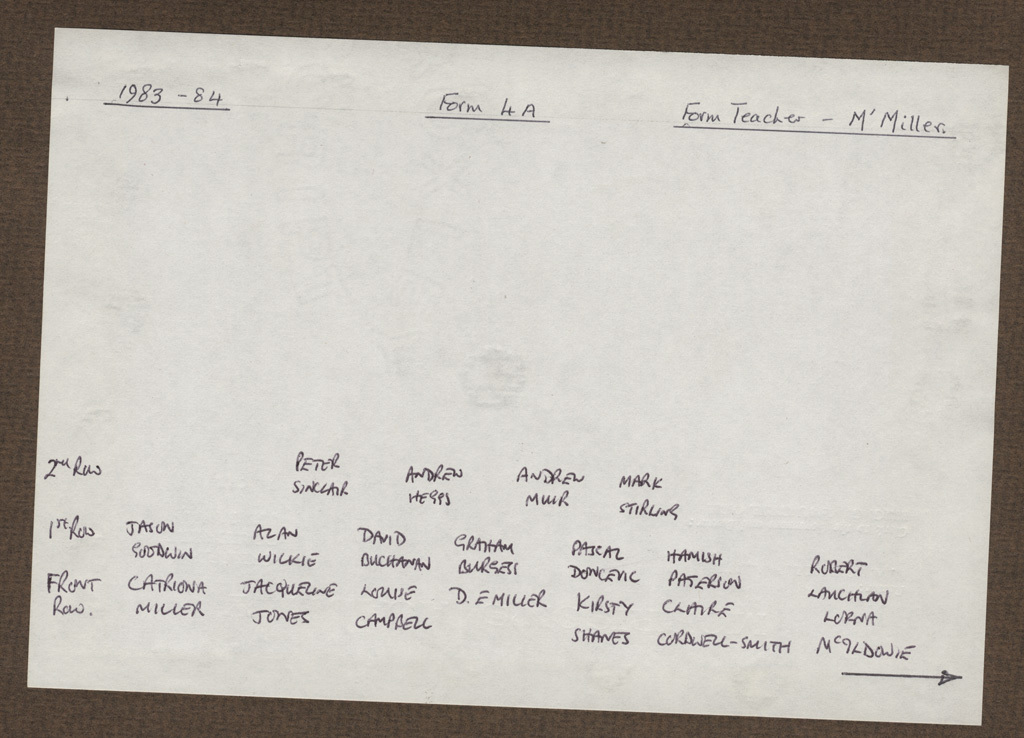 1983 - 84 Form 4A Form Teacher - Mr Miller.
2nd Row PETER ANDREW ANDREW MARK
SINCLAIR HEGGS MUIR STIRLING
1st Row JASON ALAN DAVID GRAHAM PASCAL HAMISH ROBERT
GOODWIN WILKIE BUCHANAN BURGESS DONCEVIC PATERSON LAUCHLAN
FRONT CATRIONA JACQUELINE LOUISE D. E MILLER KIRSTY CLAIRE LORNA
Row. MILLER JONES CAMPBELL SHANES CORDWELL-SMITH McILDOWIE